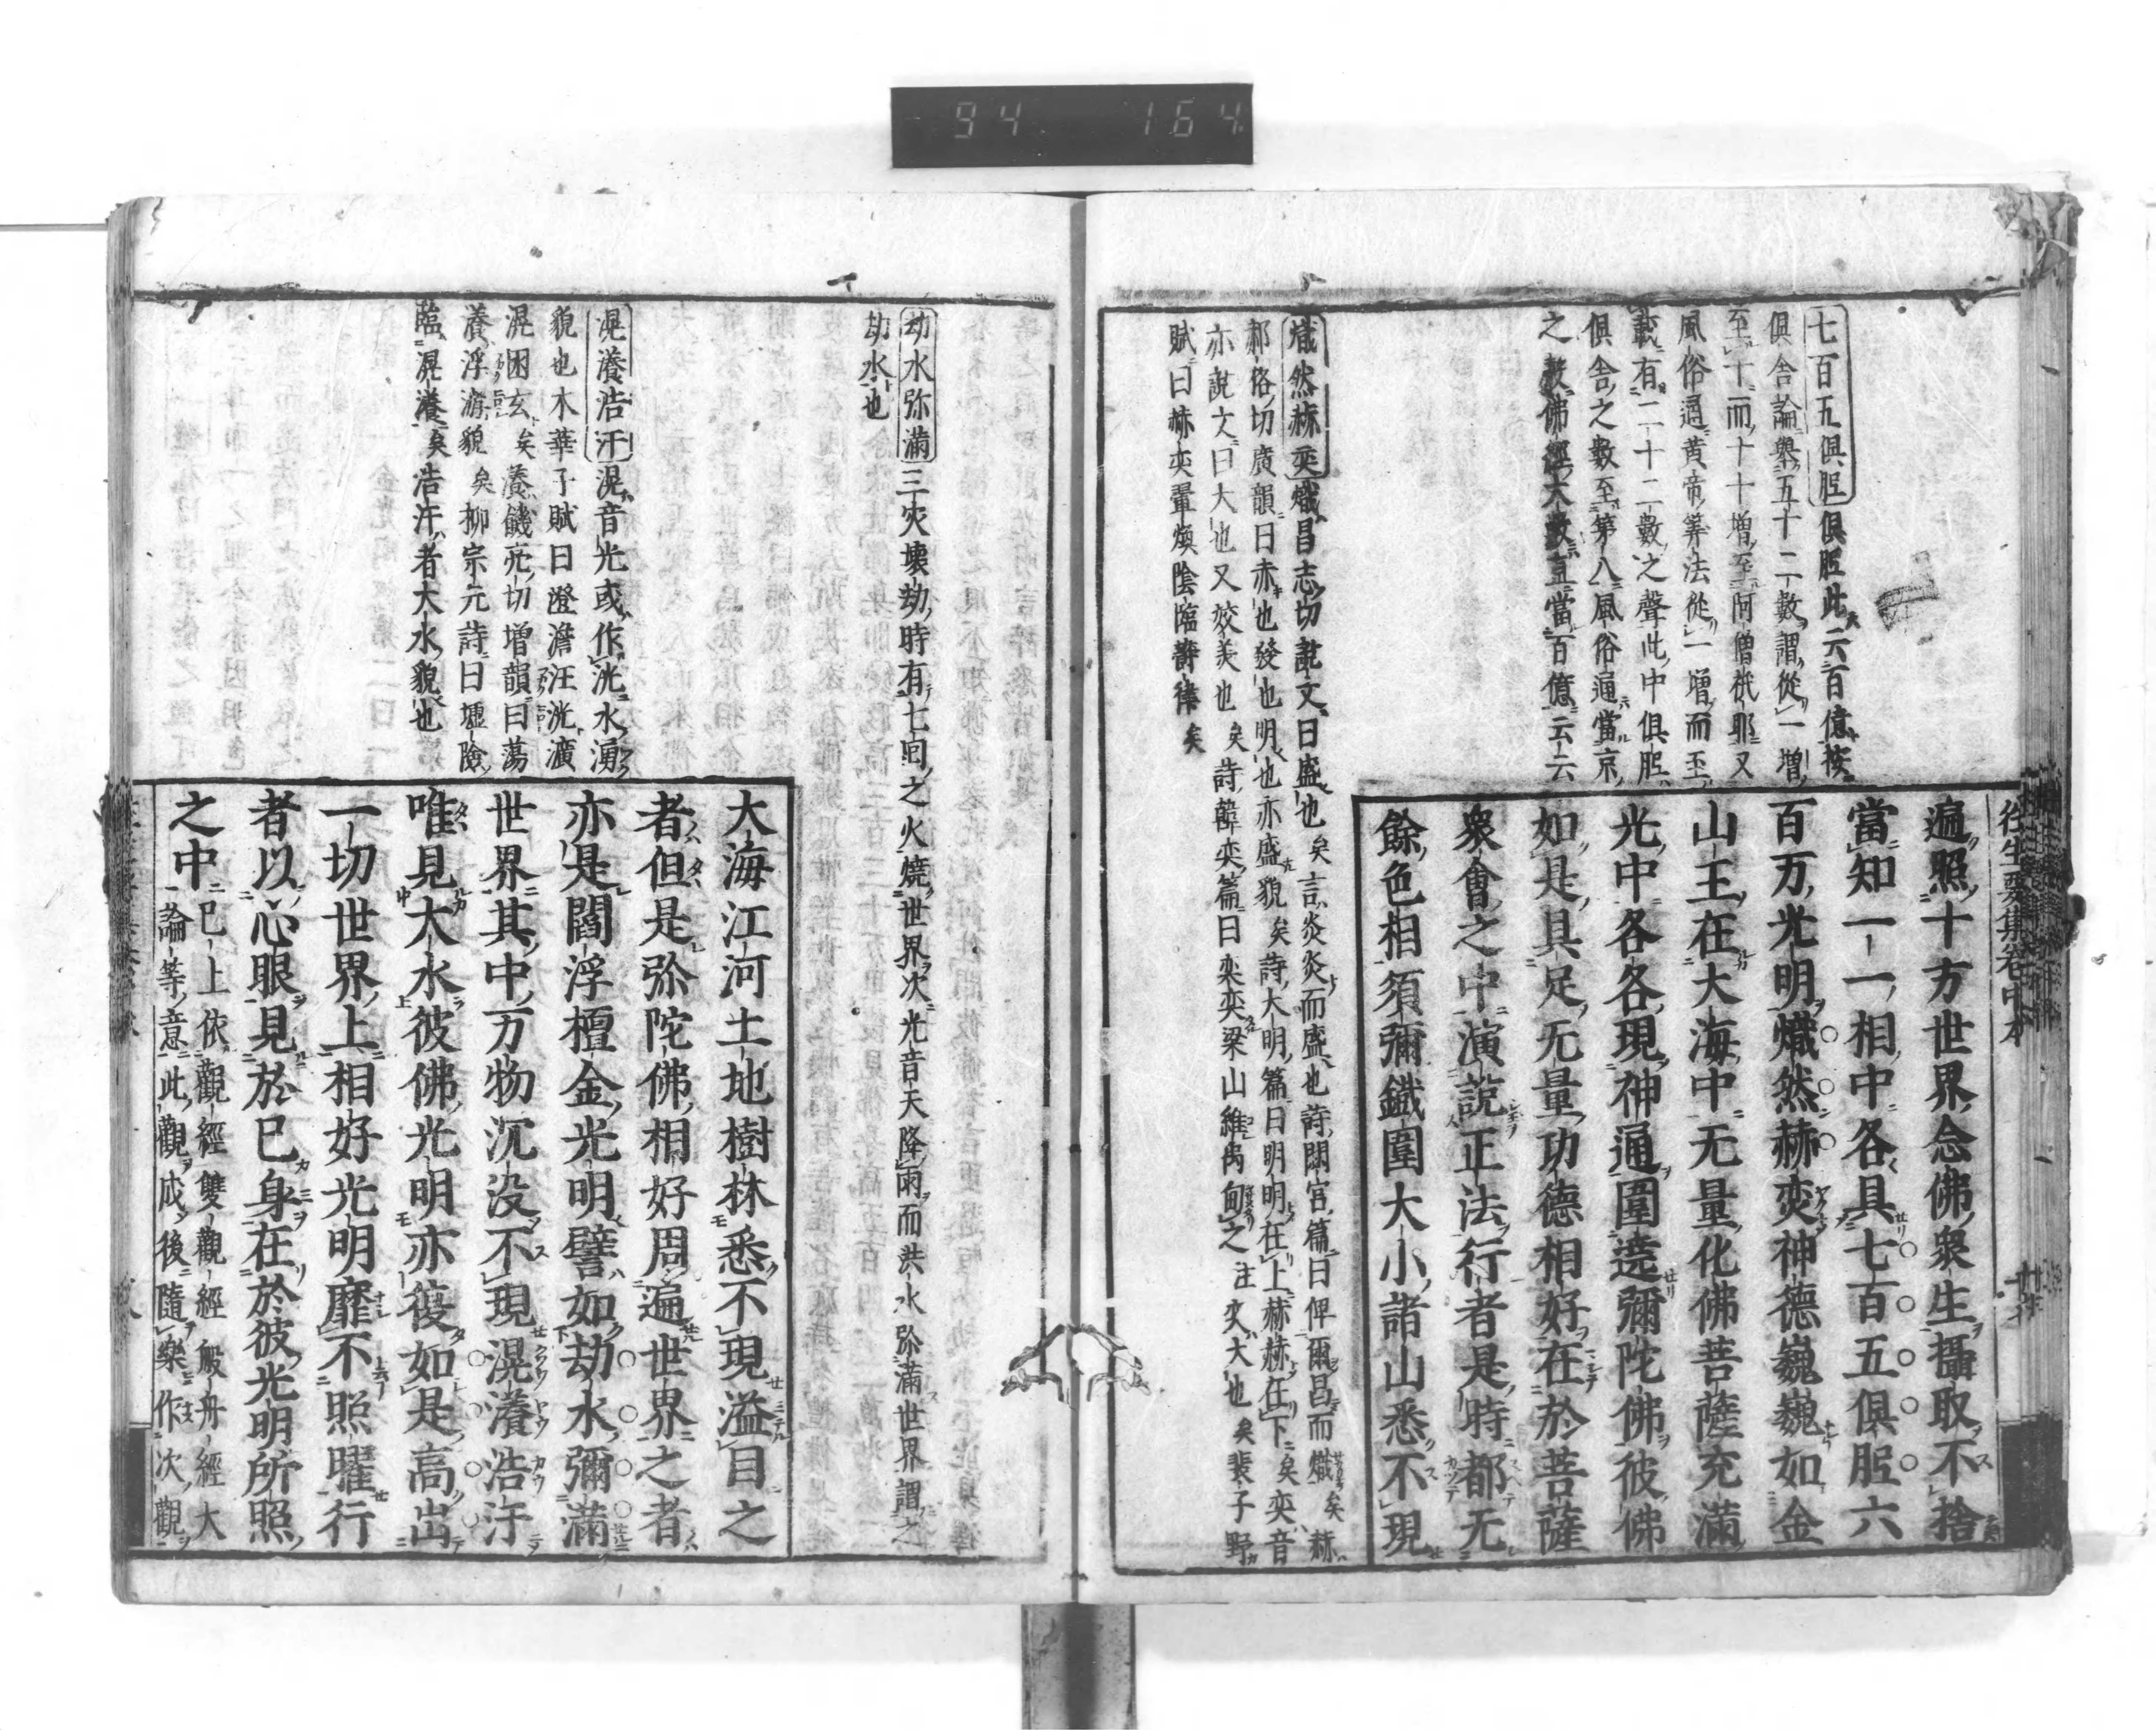 94 164
往生要集卷中本
遍照十方世界念佛衆生攝取不捨
當知一一相中各具七百五俱胝六
百万光明熾然赫奕神德巍巍如金
山王在大海中无量化佛菩薩充滿
光中各各現神通圍遶彌陀佛彼佛
如是具足无量功德相好在於菩薩
衆會之中演說正法行者是時都无
餘色相須彌鐵圍大小諸山悉不現
七百五俱胝 俱胝此云百億按
俱舍論舉五十二數謂從一增
至十而十十增至阿僧祇耶又
風俗通黄帝筭法從一增而至
載有二十二數之聲此中俱胝
俱舍之數至第八風俗通當京
之數佛經大數且當百億云云
熾然赫奕 熾昌志切說文曰盛也矣言炎炎而盛也詩閟宮篇曰俾爾昌而熾矣赫
郝佫切廣韻曰赤也發也明也亦盛貌矣詩大明篇曰明明在上赫赫在下矣奕音
亦說文曰大也又姣美也矣詩韓奕篇曰奕奕梁山維禹甸之注奕大也矣裴子野
賦曰赫奕翬煥陰臨薜律矣
劫水弥滿 三灾壊劫時有七囘之火燒世界次光音天降雨而洪水弥滿世界謂之
劫水也
滉瀁浩汗 滉音光或作洸水湧
貌也木華子賦曰澄澹汪洸瀇
滉囦玄矣瀁餓亮切増韻曰蕩
瀁浮游貌矣柳宗元詩曰墟險
臨滉瀁矣浩汗者大水貌也
大海江河土地樹林悉不現溢目之
者但是弥陀佛相好周遍世界之者
亦是閻浮檀金光明譬如劫水彌滿
世界其中万物沉没不現滉瀁浩汗
唯見大水彼佛光明亦復如是高出
一切世界上相好光明靡不照曜行
者以心眼見於已身在於彼光明所照
之中 已上依觀經雙觀經般舟經大
論等意此觀成後隨樂作次觀